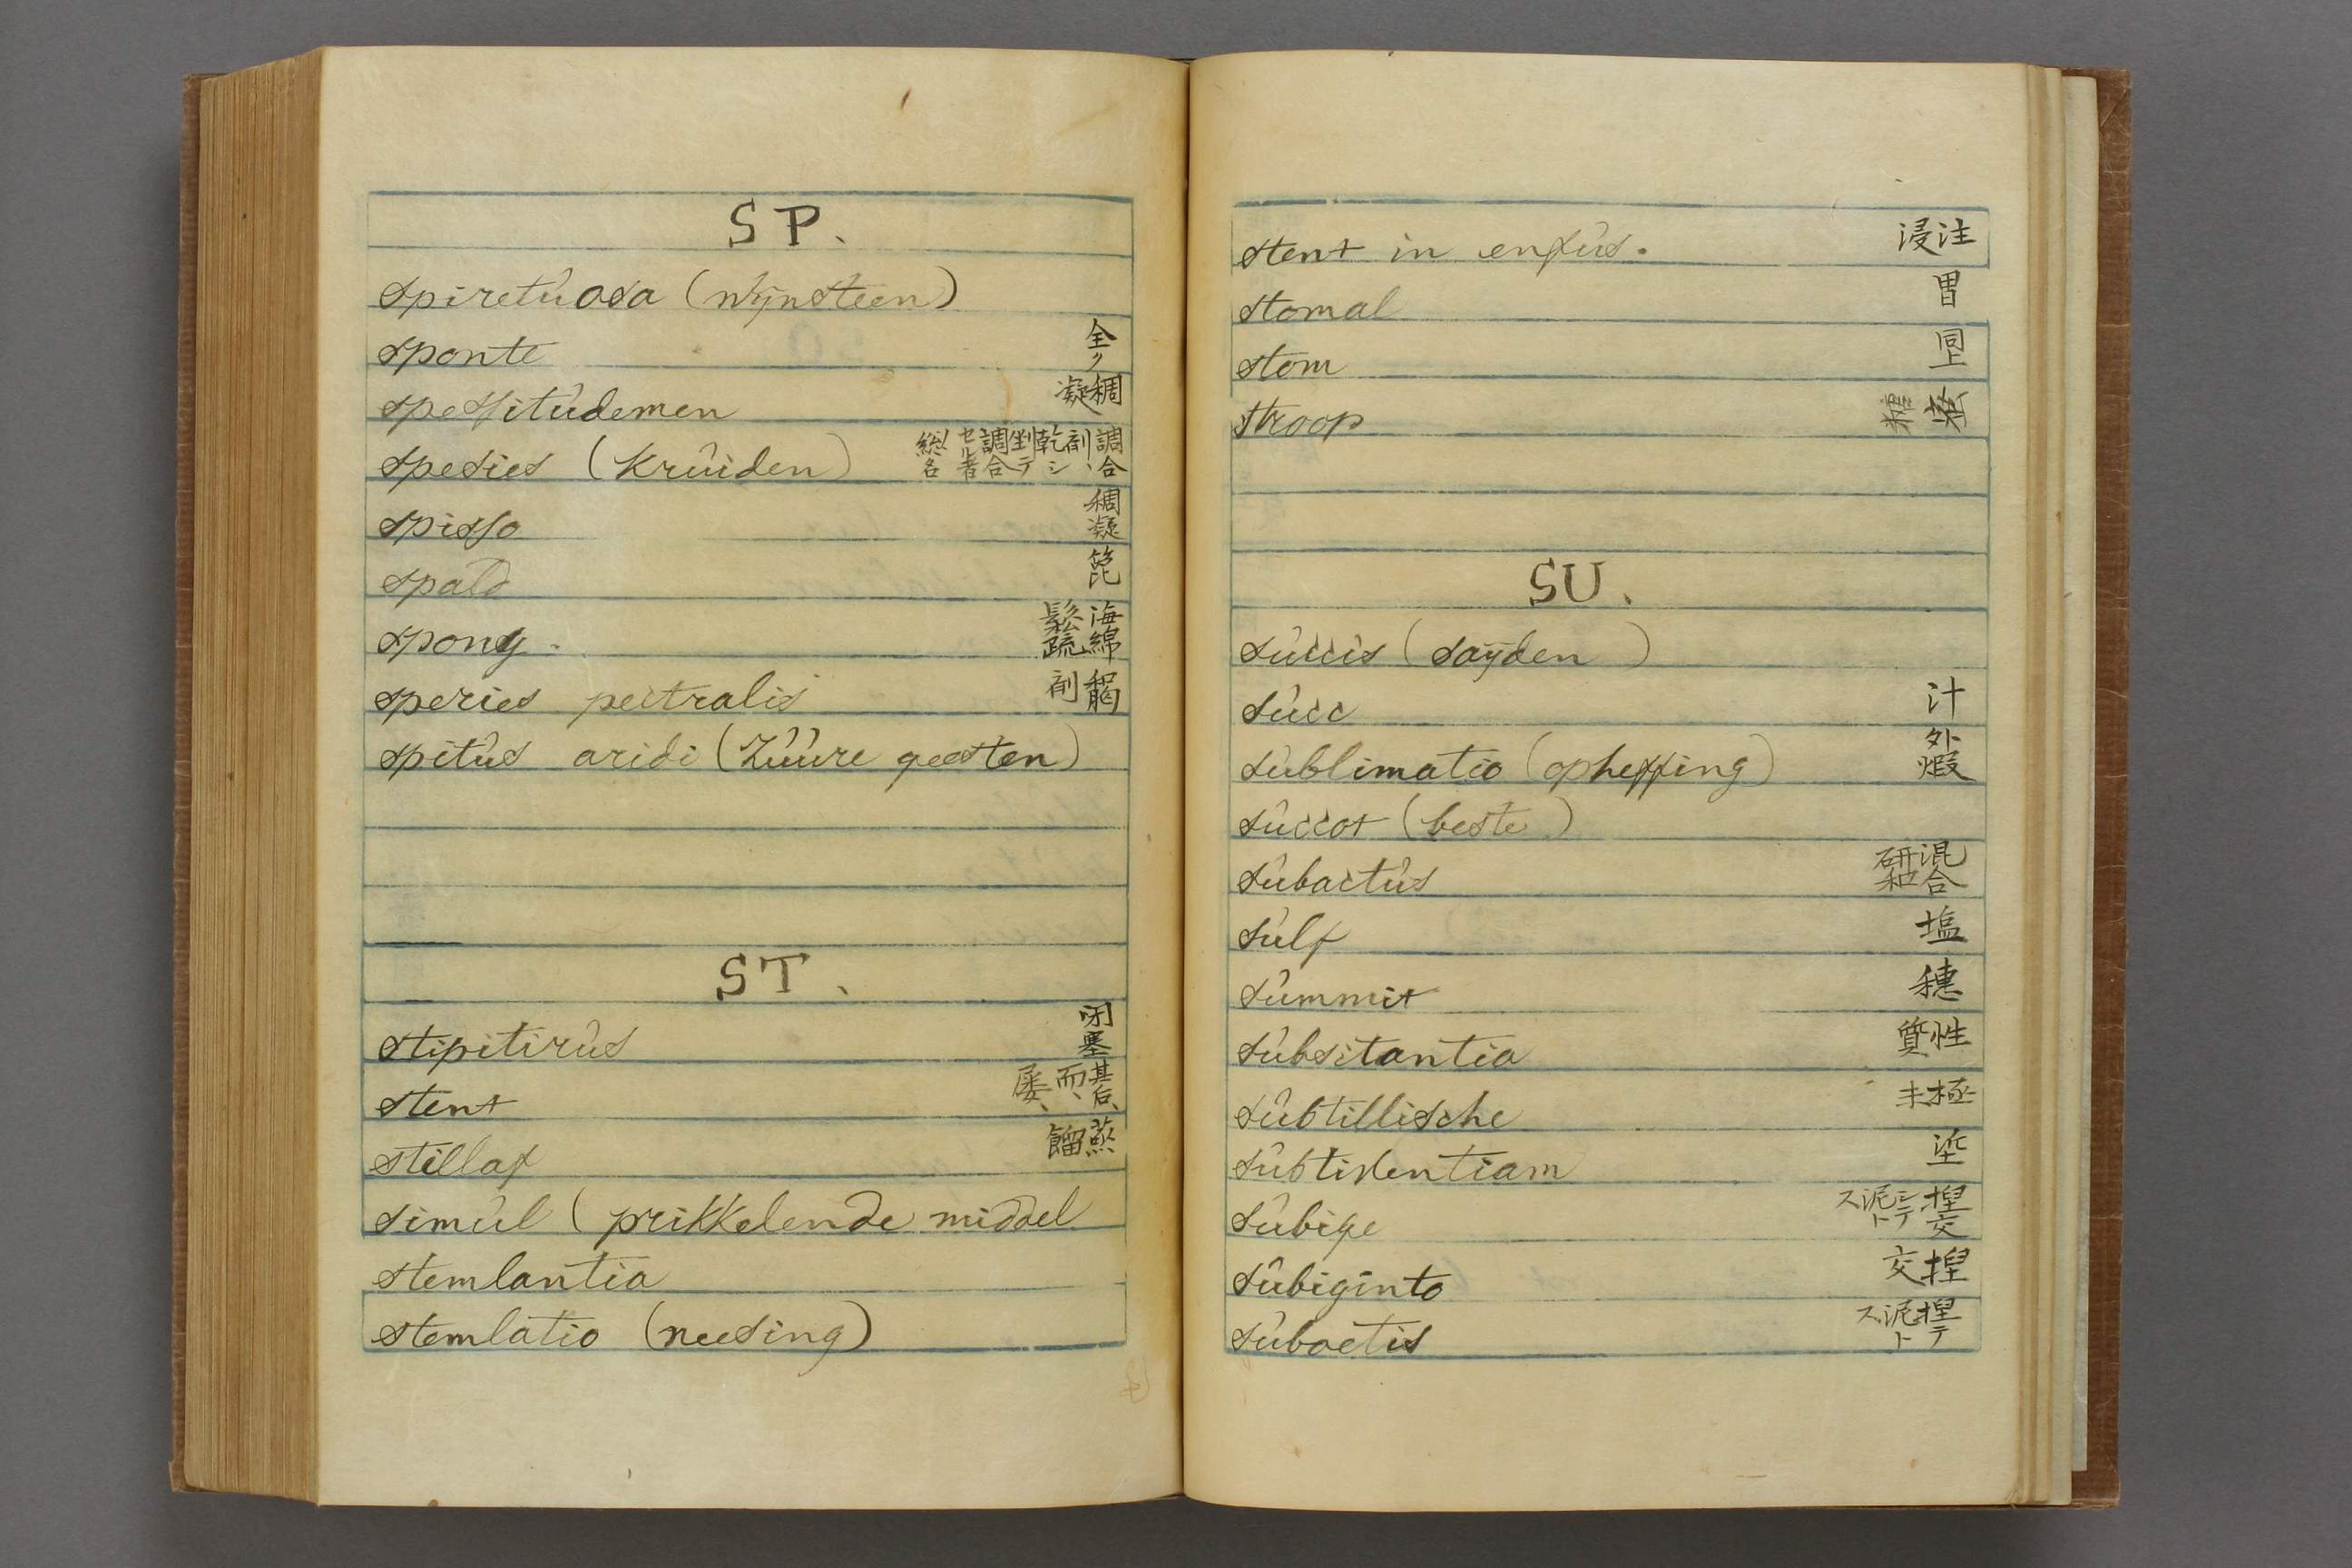 SP.
spiretuosa (wijnsteen)
sponte 全ク
spessitudemen 稠凝
spesies (Kruiden) 調合剤、乾シ剉テ調合セル者ノ総名
spisso 稠凝
spald 箆
spong. 海綿 鬆疏
speries pectralis 剤
spitus aridi (Zuure geesten)
ST.
stipitirus 閉塞
stent 其后、而、屡、
stillaf 蒸餾
simul (prikkelende middel
stemlantia
stemlatio (neesing)
stent in enfus. 注浸
stomal 胃
stom 同上
stroop 舎利 糖
SU.
succis (sayden)
succ 汁
sublimatio (opheffing) 外煆
succot (beste)
subactus 混合 研和
sulf 塩
summit 穂
subsitantia 性質
subtillische 極末
subtislentiam
subige 揑交シテ泥トス
subiginto 揑交
subactis 揑テ泥トス